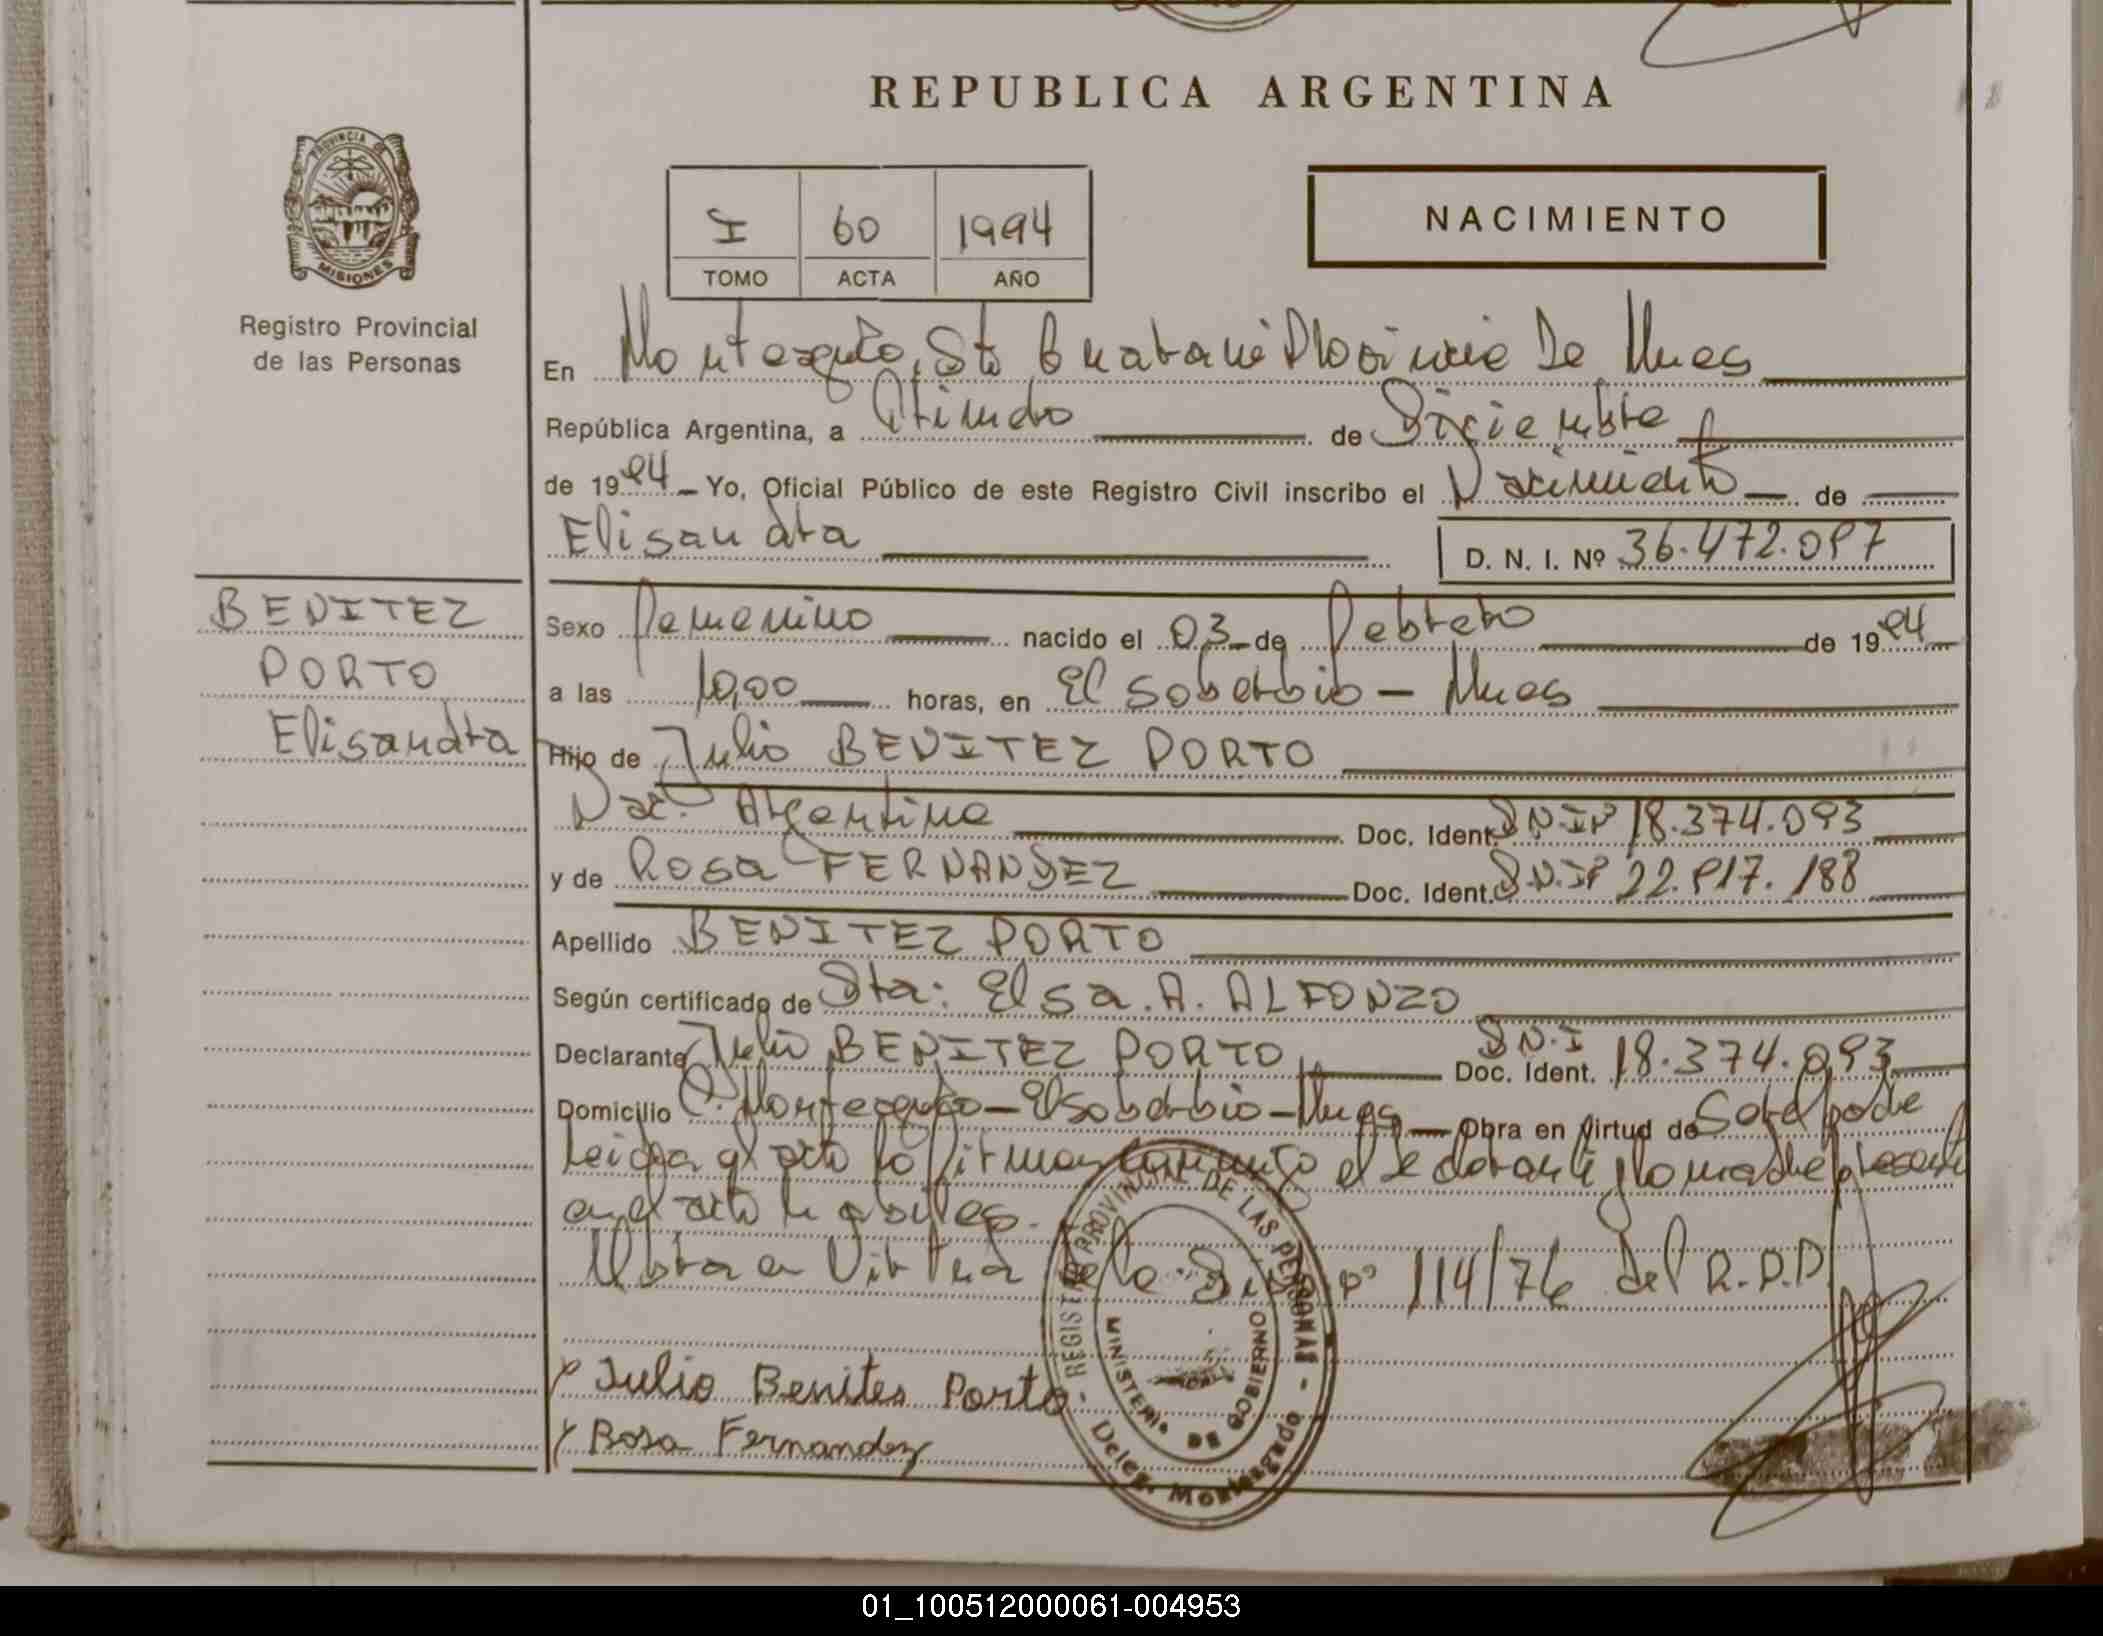 REPUBLICA ARGENTINA
PROVINCIA DE
MISIONES
Registro Provincial
de las Personas
I 60 1994
TOMO ACTA AÑO
NACIMIENTO
En Monteagudo, Provincia De Mnes
República Argentina, a de Diciembre
de 1994 Yo, Oficial Público de este Registro Civil inscribo el Nacimiento de
Elisandra D. N. I. Nº 36.472.097
BENITEZ
PORTO
Elisandra
Sexo Femenino nacido el 03 de Febrero de 1994
a las 10,00 horas, en El Soberbio - Mnes
Hijo de Julio BENITEZ PORTO
Nac. Argentina Doc. Ident. D.N.Iº 18.374.093
y de Rosa FERNANDEZ Doc. Ident. D.N.Iº 22.917.188
Apellido BENITEZ PORTO
Según certificado de Sta: Elsa. A. ALFONZO
Declarante Julio BENITEZ PORTO Doc. Ident. D.N.I 18.374.093
Domicilio Cº Monteagudo - El Soberbio - Mnes Obra en virtud de
Leida el acta la firman conmigo el declarante y la madre presente
en el acto
Obra en Virtud de la Disp. Nº 114/76 del R.P.P.
REGISTRO PROVINCIAL DE LAS PERSONAS
MINISTERIO DE GOBIERNO
Deleg. Monteagudo
Julio Benites Porto
Rosa Fernandez
01_100512000061-004953